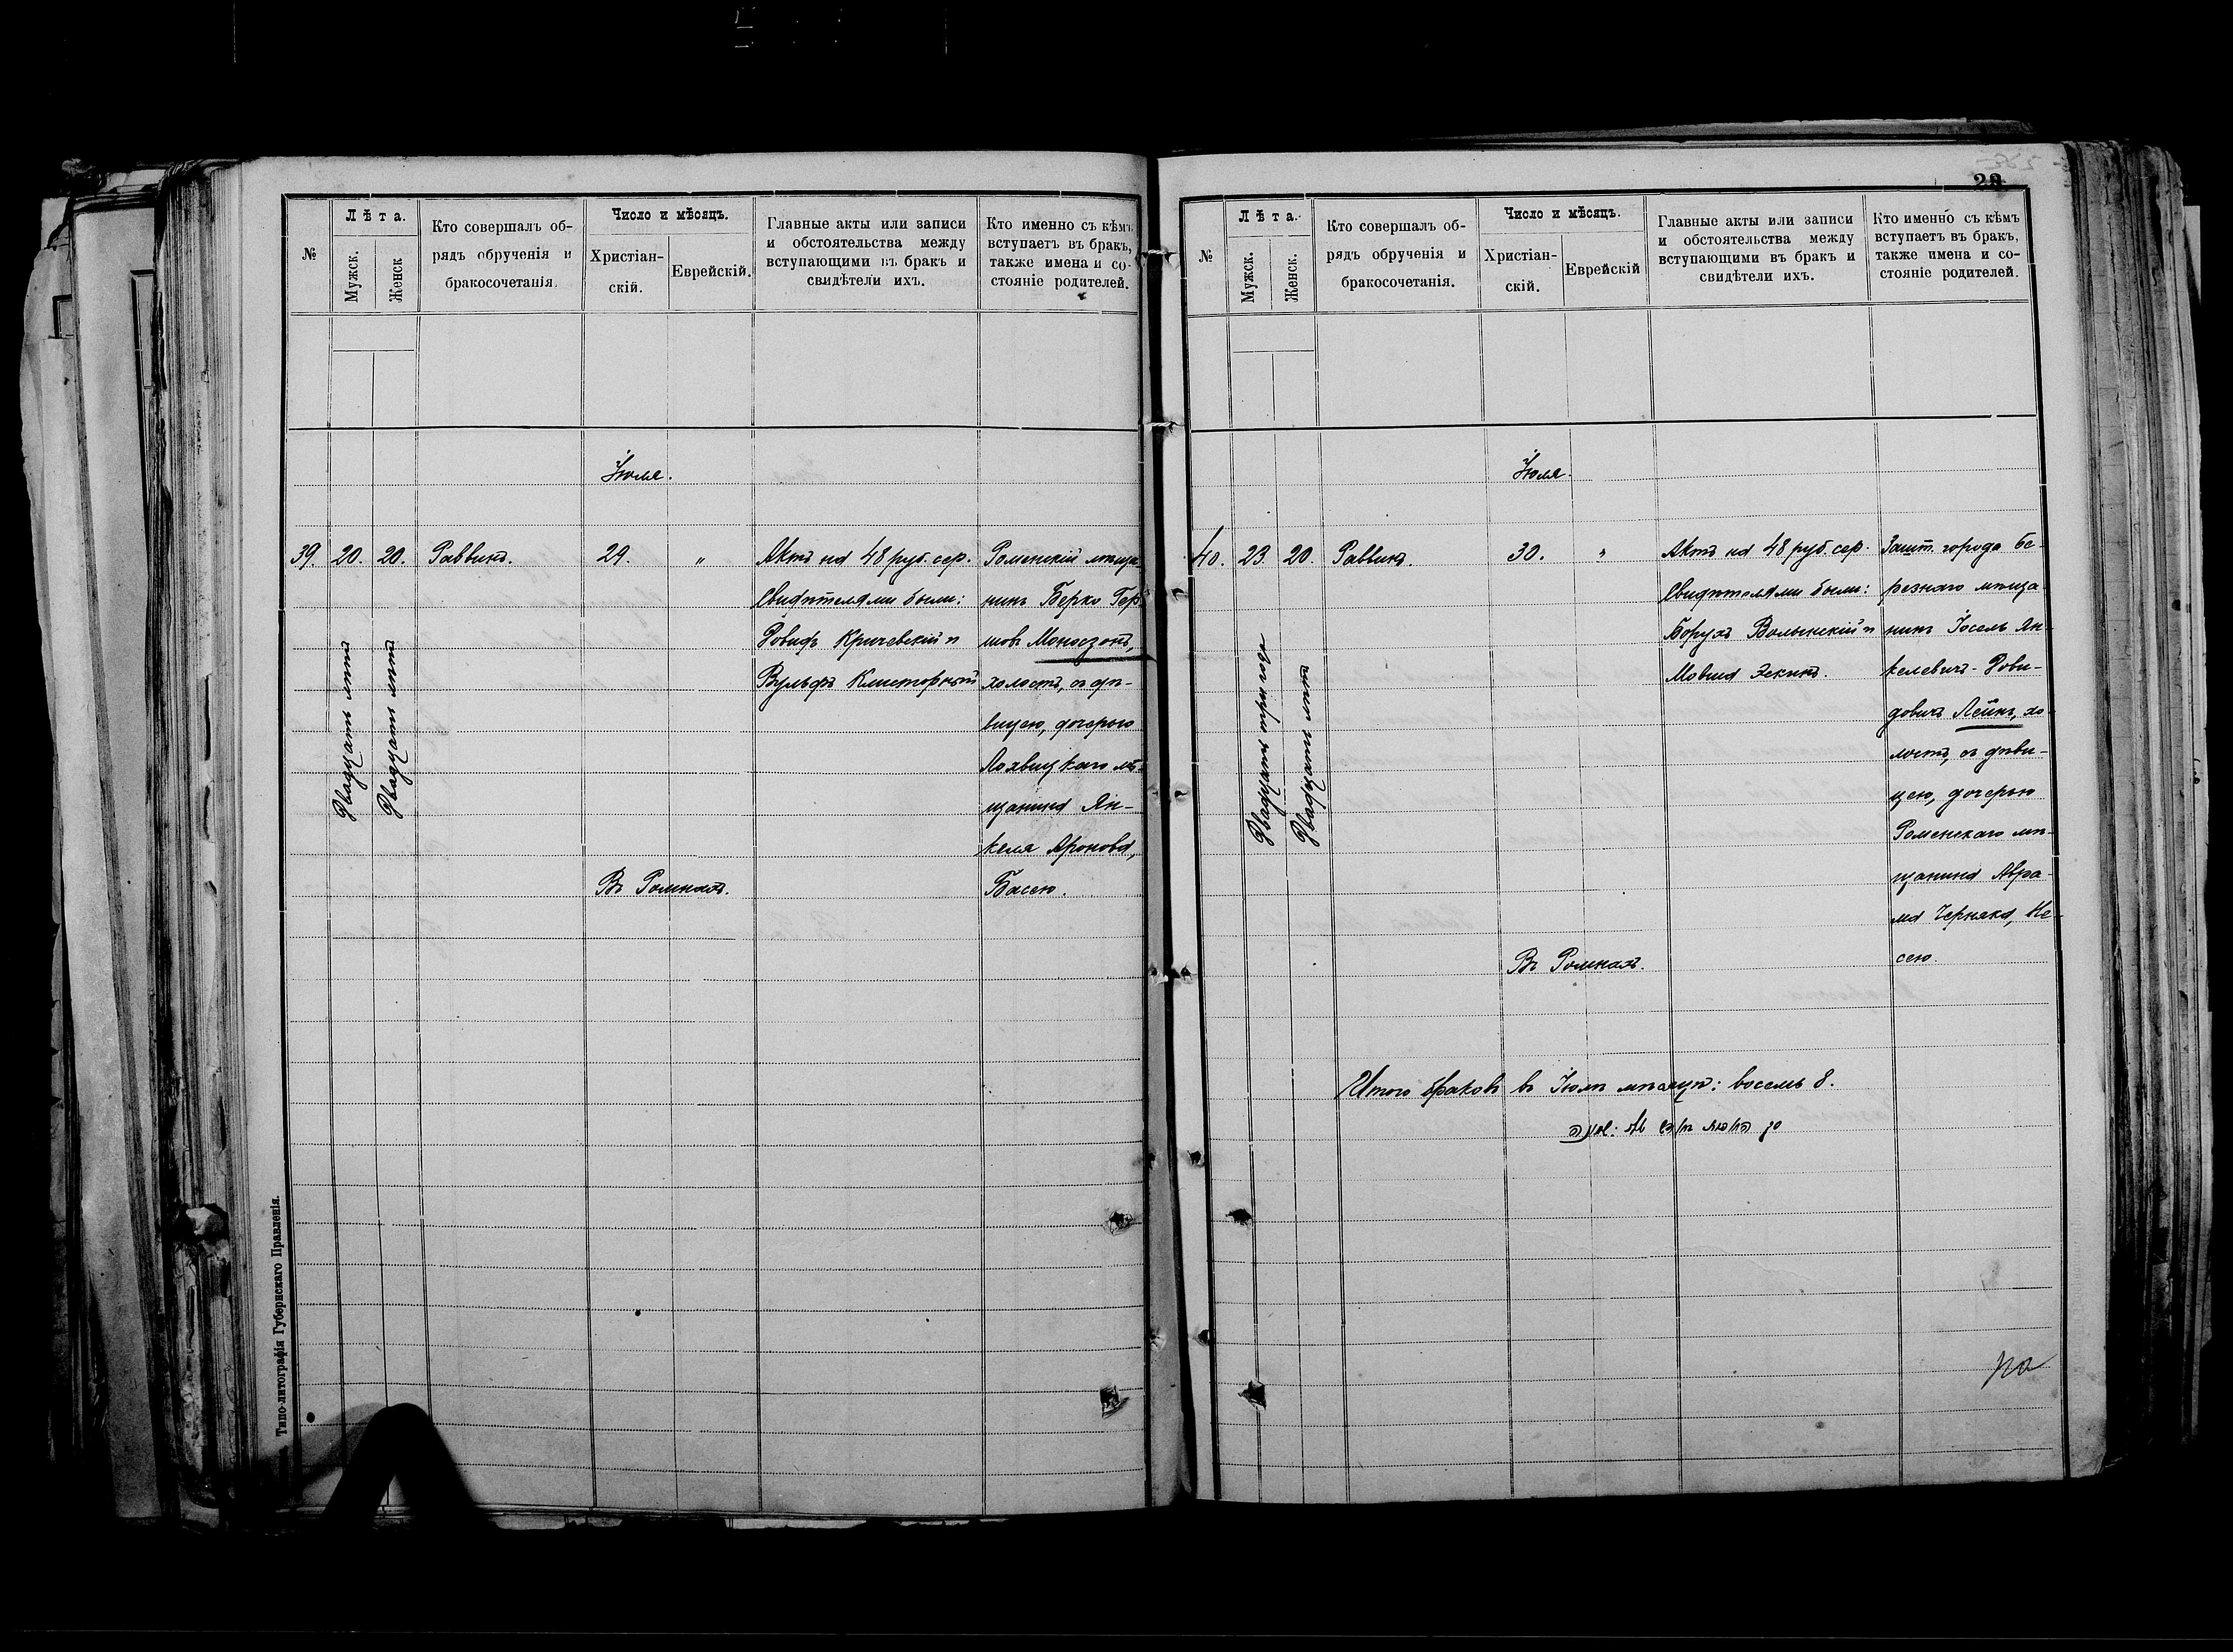 №
Лѣта.
Мужск.
Женск
Кто совершалъ об-
рядъ обрученія и
бракосочетанія.
Число и мѣсяцъ.
Христіан-
скій.
Еврейскій.
Главные акты или записи
и обстоятельства между
вступающими въ бракъ и
свидѣтели ихъ.
Кто именно съ кѣмъ
вступаетъ въ бракъ,
также имена и со-
стояніе родителей.
Іюля.
39.
20.
20.
Двадцать лѣтъ
Двадцать лѣтъ
Раввинъ.
29.
"
Въ Ромнахъ.
Актъ на 48 руб. сер.
Свидѣтелями были:
Довидъ Кричевскій и
Вульфъ
Роменскій мѣща-
нинъ Берко Гер-
шовъ Моносзонъ,
холостъ, съ дѣ-
вицею, дочерью
Лохвицкаго мѣ-
щанина Ян-
келя Аронова,
Басею.
Типо-литографія Губернскаго Правленія.
29
№
Лѣта.
Мужск.
Женск.
Кто совершалъ об-
рядъ обрученія и
бракосочетанія.
Число и мѣсяцъ.
Христіан-
скій.
Еврейскій
Главные акты или записи
и обстоятельства между
вступающими въ бракъ и
свидѣтели ихъ.
Кто именно съ кѣмъ
вступаетъ въ бракъ,
также имена и со-
стояніе родителей.
Іюля.
40.
23.
20.
Двадцать три года
Двадцать лѣтъ
Раввинъ.
30.
"
Въ Ромнахъ.
Актъ на 48 руб. сер.
Свидѣтелями были:
Борухъ Волынскій и
Мовша
Зашт. города Бе-
резнаго мѣща-
нинъ Іосель Ян-
келевичъ-Дови-
довичъ Лейнъ, хо-
лостъ, съ дѣви-
цею, дочерью
Роменскаго мѣ-
щанина Авра-
ма Черняка, Не-
сею.
Итого браковъ въ Іюлѣ мѣсяцѣ: восемь 8.